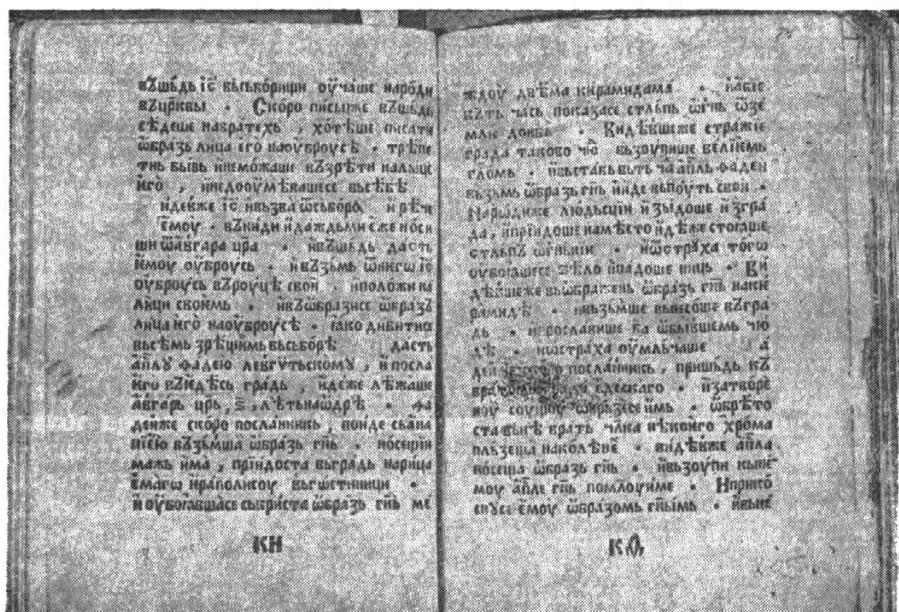 въшьдь і҃с вьсьборищи оучаше народи
въцрквы · Скоро письцже въшьдь
седеше навратехь , хотѣше писати
ѡбразь лица его наоуброусѣ · трѣпе
тнь бывь инеможаше възрѣти налице
иго , инедооумѣвашесе вьсебѣ
идеже і҃с ивьзва ѡсьборѡ и рѣче
емоу · вьниди идаждьми еже носи
ши ѿавгара цра · ивьшьдь дасть
иемоу оуброусь · ивъзьмь ѿнигѡ і҃с
оуброусь въроуцѣ свои , иположи на
лици своимь · ивъѡбразисе ѡбразъ
лица иго наоуброусѣ · іако дивитисе
вьсѣмь зрещиимь вьсьборѣ дасть
ап҃лоу фадею левгутьскомоу , и посла
иго въидесь градь , идеже лѣжаше
авгарь црь , ѕ҃ , лѣтьнаѡдрѣ · фа
деиже скоро посланникь , поиде сьана
ніею възьмша ѡбразь гнь · носещіи
мажь има , пріидоста выградь нарица
емагѡ ираполисоу вьгѡстиници ·
и оубоіавшасе сьбриста ѡбразь гнь ме
КИ
ждоу двѣма кирамидама · иабіе
вьть чась показасе стльпь ѡгнь ѿзе
мли донбь · Видѣвшеже стражіе
града таково чю вьзоупише веліемь
гл҃омь · ивьставьвьть ча ап҃ль фадеи
вьзьмь ѡбразь гнь ииде вьпоуть свои ·
Народиже людьсціи изыдоше изгра
да , ипріидоше намѣсто идѣже стоіаше
стльпь ѡгньнии · иѿстраха тогѡ
оубоіашесе ѕѣло ипадоше ниць · Ви
дѣвшеже вьѡбражень ѡбразь гнь наки
рамидѣ · ивьзьмше вьнесоше въгра
дь · ипрославише ба ѡбывшемь чю
дѣ · иѿстраха оумльчаше а
деи посланникь , пришьдь къ
едескаго · изатворе
ноу соущоу ѿврьзесе имь · ѡбрѣто
ста вьнѣ врать члка нѣкоиго хрома
пльзеща наколѣнѣ · видѣвже ап҃ла
носеща ѡбразь гнь · ивьзоупи кьне
моу ап҃ле гнь помлоуиме · Иприко
сноусе емоу ѡбразомь гнимь · ивьне
КѲ